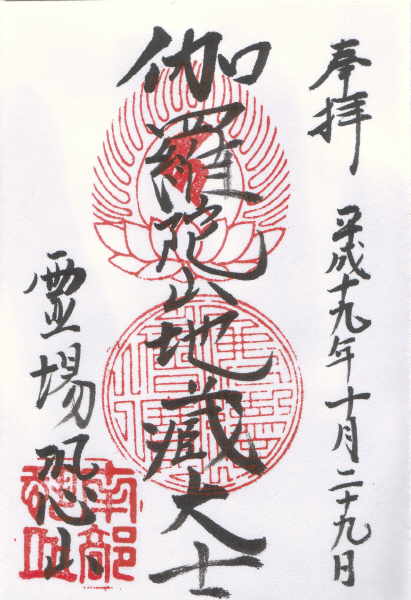 奉拝
平成十九年十月二十九日
伽羅陀山地蔵大士
霊場恐山